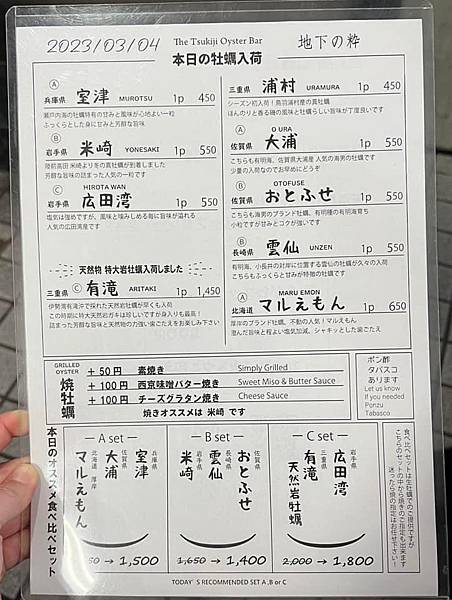 2023/03/04
The Tsukiji Oyster Bar
地下の粋
本日の牡蠣入荷
Ⓐ
兵庫県 室津 MUROTSU 1p 450
瀬戸内海の牡蠣特有の甘みと風味が心地よい一粒
ふっくらとした身に甘みと芳醇な旨味
Ⓑ
岩手県 米崎 YONESAKI 1p 550
陸前高田 米崎より冬の真牡蠣が到着しました
芳醇な旨味の詰まった人気の一粒です
Ⓒ HIROTA WAN
岩手県 広田湾 1p 550
塩気は強めですが、風味と噛みしめる毎に旨味が溢れる
人気の広田湾産です
天然物 特大岩牡蠣入荷しました
Ⓒ
三重県 有滝 ARITAKI 1p 1,450
伊勢湾有滝沖で採れた天然岩牡蠣が早くも入荷
この時期に特大天然岩ガキは珍しいですが身入りも最高!
詰まった芳醇な旨味と天然物の力強い歯ごたえをお楽しみ下さい
三重県 浦村 URAMURA 1p 450
シーズン初入荷!鳥羽浦村産の真牡蠣
ほんのりと香る磯の風味と牡蠣らしい旨味が丁度良いです
Ⓐ O URA
佐賀県 大浦 1p 550
こちらも有明海、佐賀県大浦産 人気の海男の牡蠣です
少量の入荷なのでお早めにどうぞ
Ⓑ OTOFUSE
佐賀県 おとふせ 1p 550
こちらも海男のブランド牡蠣、有明種の有明海育ち
小粒ですが甘みとコクが強いです
Ⓑ
長崎県 雲仙 UNZEN 1p 550
有明海、小長井の対岸に位置する雲仙の牡蠣が久々の入荷
こちらもふっくらと甘みが特徴の牡蠣です
Ⓐ MARU EMON
北海道 マルえもん 1p 650
厚岸のブランド牡蠣、不動の人気!マルえもん
澄んだ旨味と程よい塩気加減、シャキッとした歯ごたえ
GRILLED OYSTER
焼牡蠣
+50円 素焼き Simply Grilled
+100円 西京味噌バター焼き Sweet Miso & Butter Sauce
+100円 チーズグラタン焼き Cheese Sauce
焼きオススメは 米崎 です
ポン酢
タバスコ
あります
Let us know
If you needed
Ponzu
Tabasco
本日のオススメ食べ比べセット
A set
兵庫県 室津
佐賀県 大浦
北海道 厚岸 マルえもん
→ 1,500
B set
佐賀県 おとふせ
長崎県 雲仙
岩手県 米崎
1,650 → 1,400
C set
岩手県 広田湾
三重県 有滝 天然岩牡蠣
2,000 → 1,800
食べ比べセットは生牡蠣でのご提供ですが
こちらのセットの中から焼きのご指定も出来ます
迷ったら焼の指定はお任せ下さい!
TODAY'S RECOMMENDED SET A ,B or C